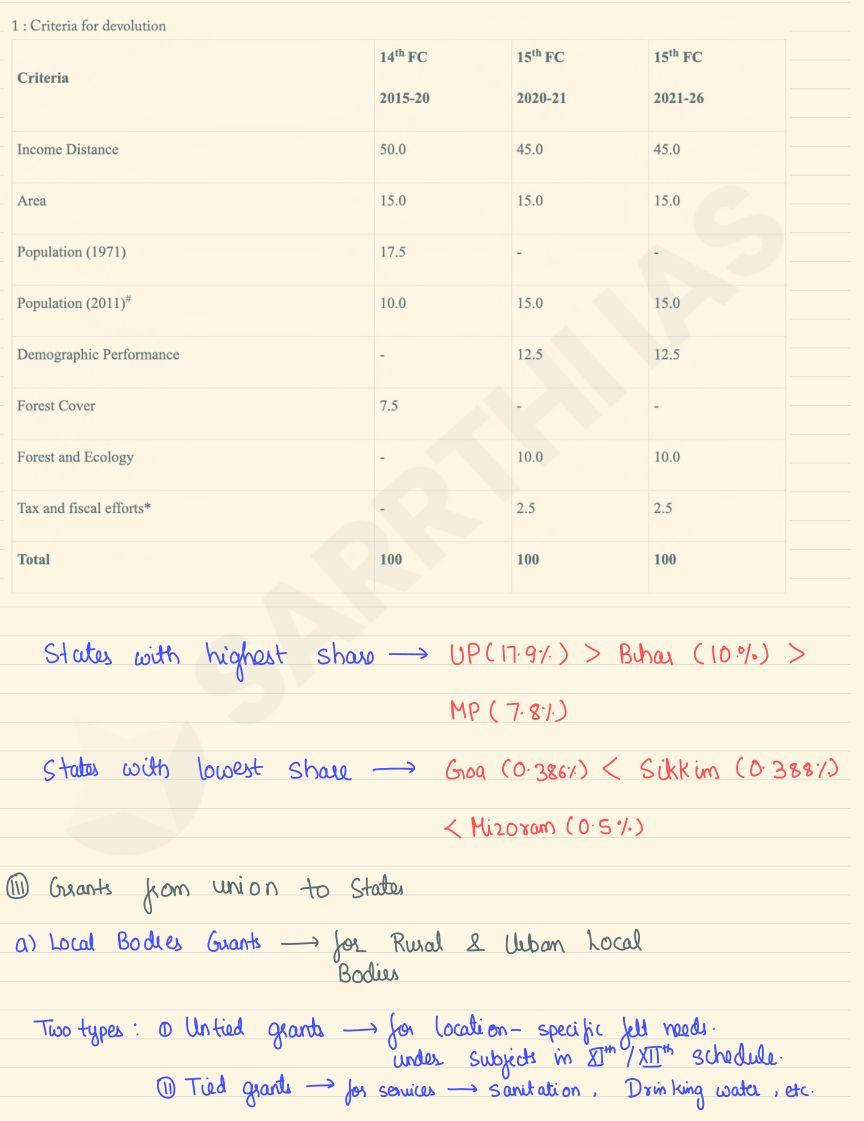 1 : Criteria for devolution
Criteria 14th FC 2015-20 15th FC 2020-21 15th FC 2021-26
Income Distance 50.0 45.0 45.0
Area 15.0 15.0 15.0
Population (1971) 17.5 - -
Population (2011)# 10.0 15.0 15.0
Demographic Performance - 12.5 12.5
Forest Cover 7.5 - -
Forest and Ecology - 10.0 10.0
Tax and fiscal efforts* - 2.5 2.5
Total 100 100 100
SARRTHI IAS
States with highest share → UP (17.9%) > Bihar (10%) >
MP (7.8%)
States with lowest share → Goa (0.386%) < Sikkim (0.388%)
< Mizoram (0.5%)
III Grants from union to States
a) Local Bodies Grants → for Rural & Urban Local
Bodies
Two types : I Untied grants → for location-specific felt needs.
under subjects in XIth / XIIth schedule.
II Tied grants → for services → sanitation, Drinking water, etc.